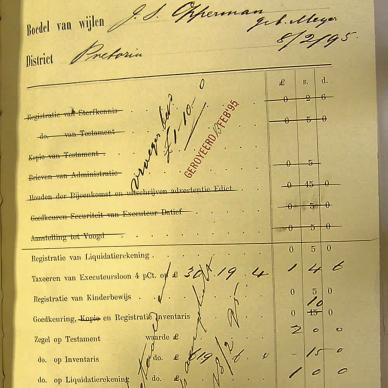 Boedel van wijlen J. S. Opperman
geb. Meyer
District Pretoria 8/2/95.
£ s. d.
Registratie van Sterfkennis 0 2 6
do. van Testament 0 5 0
Kopie van Testament
Brieven van Administratie 0 5
Houden der Bijeenkomst en uitschrijven advertentie Edict 0 45 0
Goedkeuren Securiteit van Executeur Datief 0 5 0
Aanstelling tot Voogd 0 5 0
£1-10-0
GEROYEERD FEB '95
Registratie van Liquidatierekening 0 5 0
Taxeeren van Executeursloon 4 pCt. op £ 30 19 4 1 4 6
Registratie van Kinderbewijs 0 5 0
Goedkeuring, Kopie en Registratie Inventaris 0 15 0
10
Zegel op Testament waarde £ 2 0 0
do. op Inventaris do. £ 15 0
do. op Liquidatierekening do. £ 1 0 0